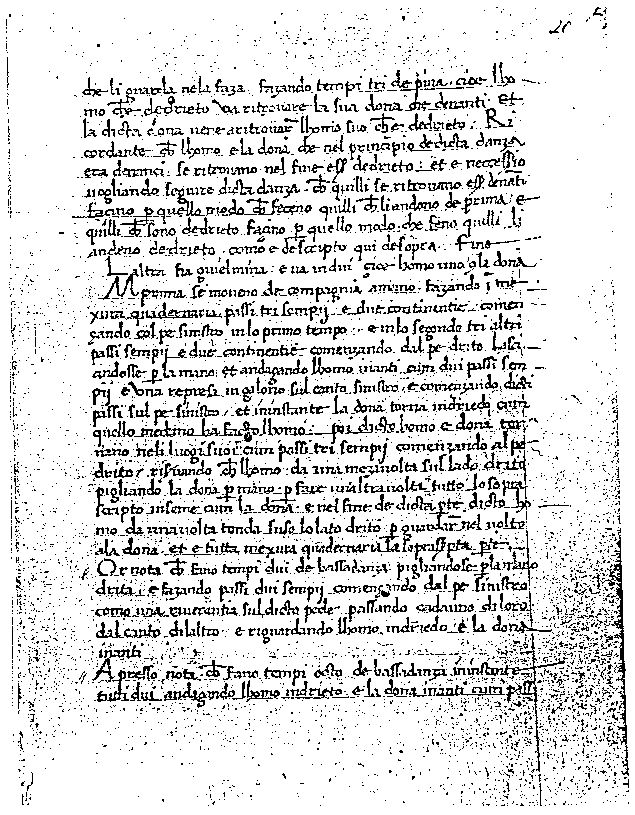 che li guarda nela faza. fazando tempi tri de p̄ma. cioe lho
mo ch̄ e dedrieto va ritrovare la sua dona che denanti. Et
la dicta dona vene a ritrovar lhomo suo ch̄ e dedrieto. Ri
cordante ch̄ lhomo e la dona che nel principio de dicta danza
era denanci. se ritrovano nel fine ess̄ dedrieto. et e necessio
vogliando seguire dicta danza. ch̄ quilli se ritrovano ess̄ denāti
facino p quello modo ch̄ feceno quilli ch̄ li andono de prima. e
quilli ch̄ sono dedrieto. facino p quello modo. che feno quilli li
andeno dedrieto. como e descripto qui desopra. Fino
Laltra fia guielmina. e va in dui cioe homo uno 7 la dona
Mprima se moveno de compagnia amino. fazando ī me
xura quadernaria passi tri sempij e due continentie. comen
zando col pe sinistro in lo primo tempo. e in lo segondo tri altri
passi sempij e due continentie comenzando dal pe drito. lassa
andosse p la mano. et andagando lhomo inanti cum dui passi sem
pij e Una represa in galono sul canto sinistro. e comenzando dicti
passi sul pe sinistro. et in instante la dona torna indriedo cum
quello medemo ha facto lhomo. poi dicto homo e dona tor
nano neli luogi suoi cum passi tri sempij comenzando al pe
drito. riservando ch̄ lhomo da una mezavolta sul lado drito
pigliando la dona p mano. p fare unaltra volta tutto lo sopra
scripto inseme cum la dona. e nel fine de dicta pte dicto ho
mo da una volta tonda suso lo lato drito. p guardar nel volto
ala dona. et e tutta mexura quadernaria la soprascripta pte.
Or nota ch̄ fano tempi dui de bassadanza pigliandose p la mano
drita. e fazando passi dui sempij comenzando dal pe sinistro
como una riverentia sul dicto pede. passando cadauno di loro
dal canto di laltro. e riguardando lhomo indriedo e la dona
inanti
Apresso nota ch̄ fano tempi octo de bassadanza in instante
tuti dui andagando lhomo indrieto e la dona inanti cum passi